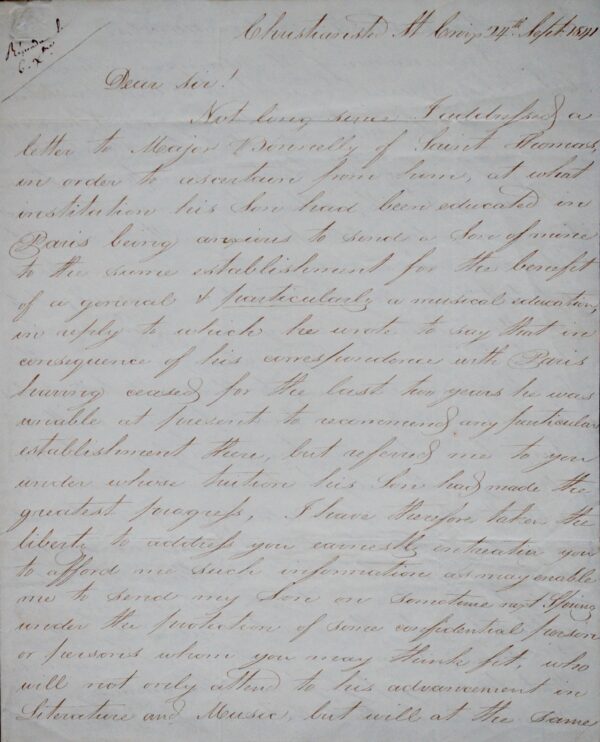 Christiansted St Croix 24th Sept 1841
Dear sir!
Not long since I addressed a
letter to Major Donnelly of Saint Thomas,
in order to ascertain from him, at what
institution his Son had been educated in
Paris being anxious to send a Son of mine
to the same establishment for the benefit
of a general & particularly a musical education,
in reply to which he wrote to say that in
consequence of his correspondence with Paris
having ceased for the last two years he was
unable at present to recommend any particular
establishment there, but referred me to you
under whose tuition his Son had made the
greatest progress, I have therefore taken the
liberty to address you earnestly entreating you
to afford me such information as may enable
me to send my Son on sometime next Spring
under the protection of some confidential person
or persons whom you may think fit, who
will not only attend to his advancement in
Literature and Music, but will at the same